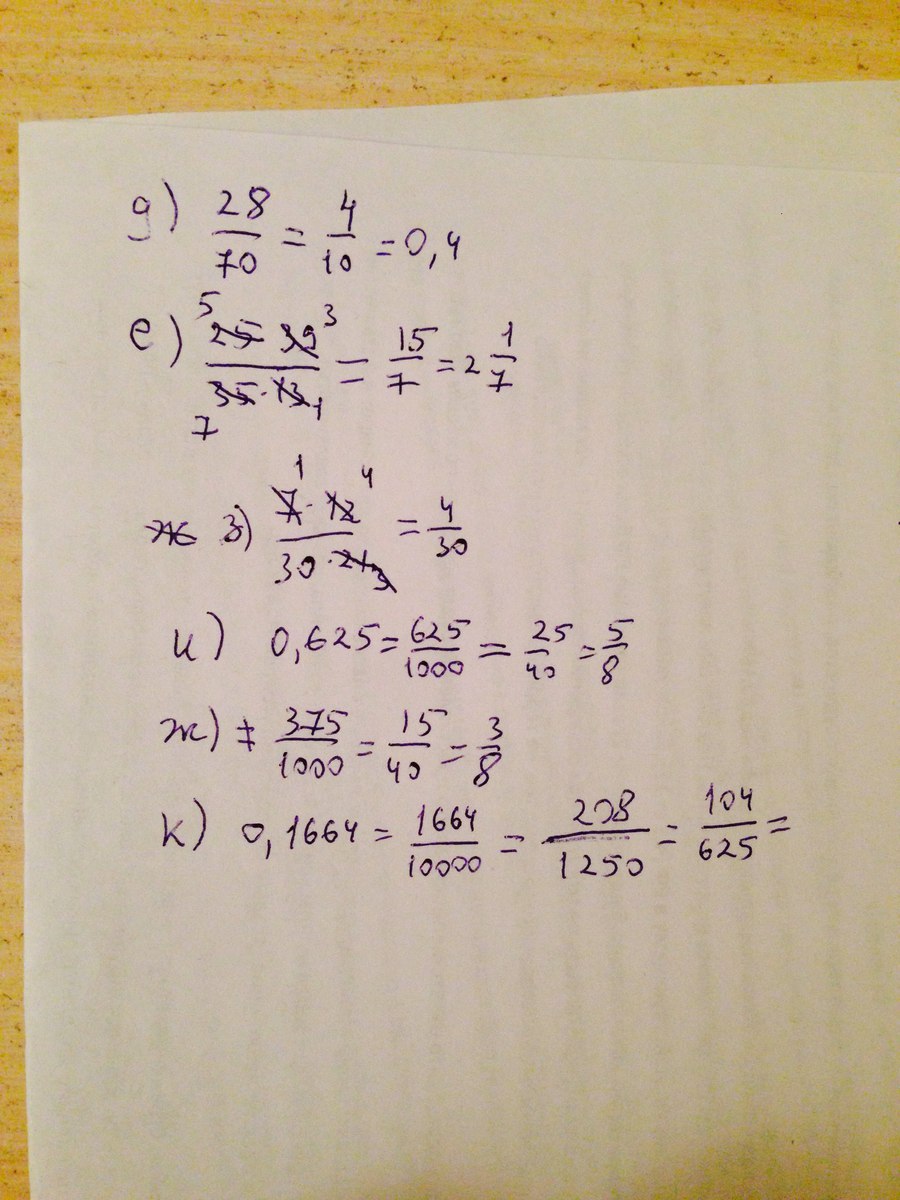 д) 28/70 = 4/10 = 0,4
е) 25 39/35·13 = 15/7 = 2 1/7 (5 3 7 1)
ж з) 7·12/30·21 = 4/30 (1 4 3)
и) 0,625 = 625/1000 = 25/40 = 5/8
ж) 375/1000 = 15/40 = 3/8
к) 0,1664 = 1664/10000 = 208/1250 = 104/625 =